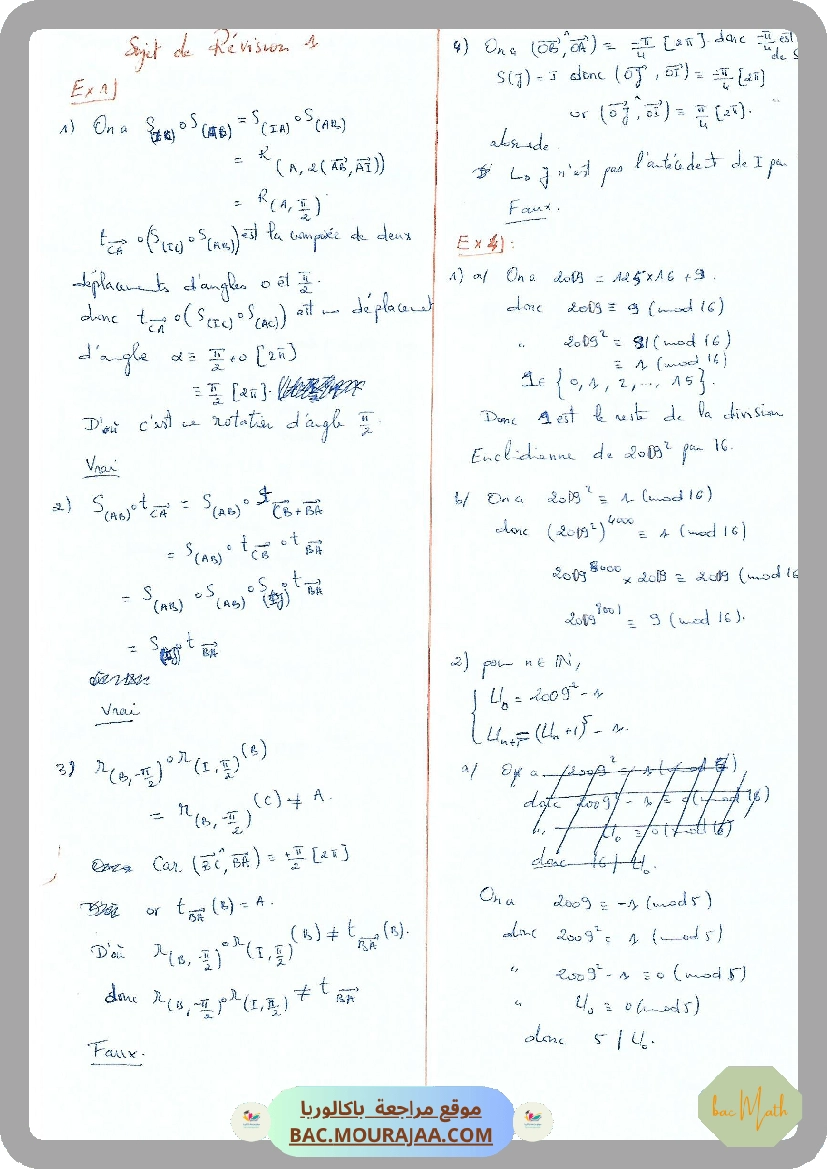 Sujet de Révision 1
Ex 1)
1) On a S(IC) o S(AB) = S(IA) o S(AB)
= R(A, 2(AB, AI))
= R(A, π/2)
t_CA o (S(IC) o S(AB)) est la composée de deux
déplacements d'angles 0 et π/2.
donc t_CA o (S(IC) o S(AC)) est un déplacement
d'angle α ≡ π/2 + 0 [2π]
≡ π/2 [2π].
D'où c'est une rotation d'angle π/2.
Vrai
2) S(AB) o t_CA = S(AB) o t_CB + BA
= S(AB) o t_CB o t_BA
= S(AB) o S(AB) o S(IJ) o t_BA
= S(IJ) o t_BA
Vrai
3) r(B, -π/2) o r(I, π/2) (B)
= r(B, -π/2) (C) ≠ A.
Car (BC, BA) ≡ +π/2 [2π]
or t_BA (B) = A.
D'où r(B, -π/2) o r(I, π/2) (B) ≠ t_BA (B).
donc r(B, -π/2) o r(I, π/2) ≠ t_BA
Faux.
4) On a (OB, OA) ≡ -π/4 [2π]. donc -π/4 est
de S
S(J) = I donc (OJ, OI) ≡ -π/4 [2π]
or (OJ, OI) ≡ π/4 [2π].
absurde
↳ J n'est pas l'antécédent de I par
Faux.
Ex 4):
1) a/ On a 2009 = 125x16 + 9.
donc 2009 ≡ 9 (mod 16)
" 2009² ≡ 81 (mod 16)
≡ 1 (mod 16)
1 ∈ {0, 1, 2, ..., 15}.
Donc 1 est le reste de la division
Euclidienne de 2009² par 16.
b/ On a 2009² ≡ 1 (mod 16)
donc (2009²)^4000 ≡ 1 (mod 16)
2009^8000 x 2009 ≡ 2009 (mod 16
2009^8001 ≡ 9 (mod 16).
2) pour n ∈ ℕ,
{ U₀ = 2009² - 1
U_n+1 = (U_n + 1)⁵ - 1.
a/ On a 2009² ≡ 1 (mod 16)
donc 2009² - 1 ≡ 0 (mod 16)
" U₀ ≡ 0 (mod 16)
donc 16 / U₀.
On a 2009 ≡ -1 (mod 5)
donc 2009² ≡ 1 (mod 5)
" 2009² - 1 ≡ 0 (mod 5)
" U₀ ≡ 0 (mod 5)
donc 5 / U₀.
موقع مراجعة باكالوريا
BAC.MOURAJAA.COM
bac Math